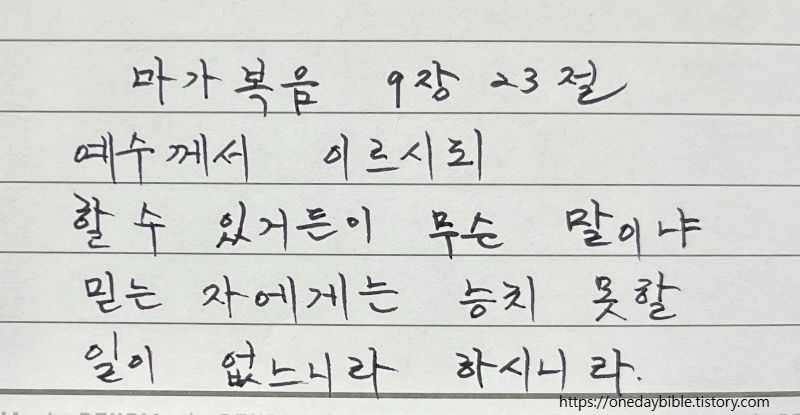 마가복음 9장 23절
예수께서 이르시되
할 수 있거든이 무슨 말이냐
믿는 자에게는 능치 못할
일이 없느니라 하시니라.
https://onedaybible.tistory.com